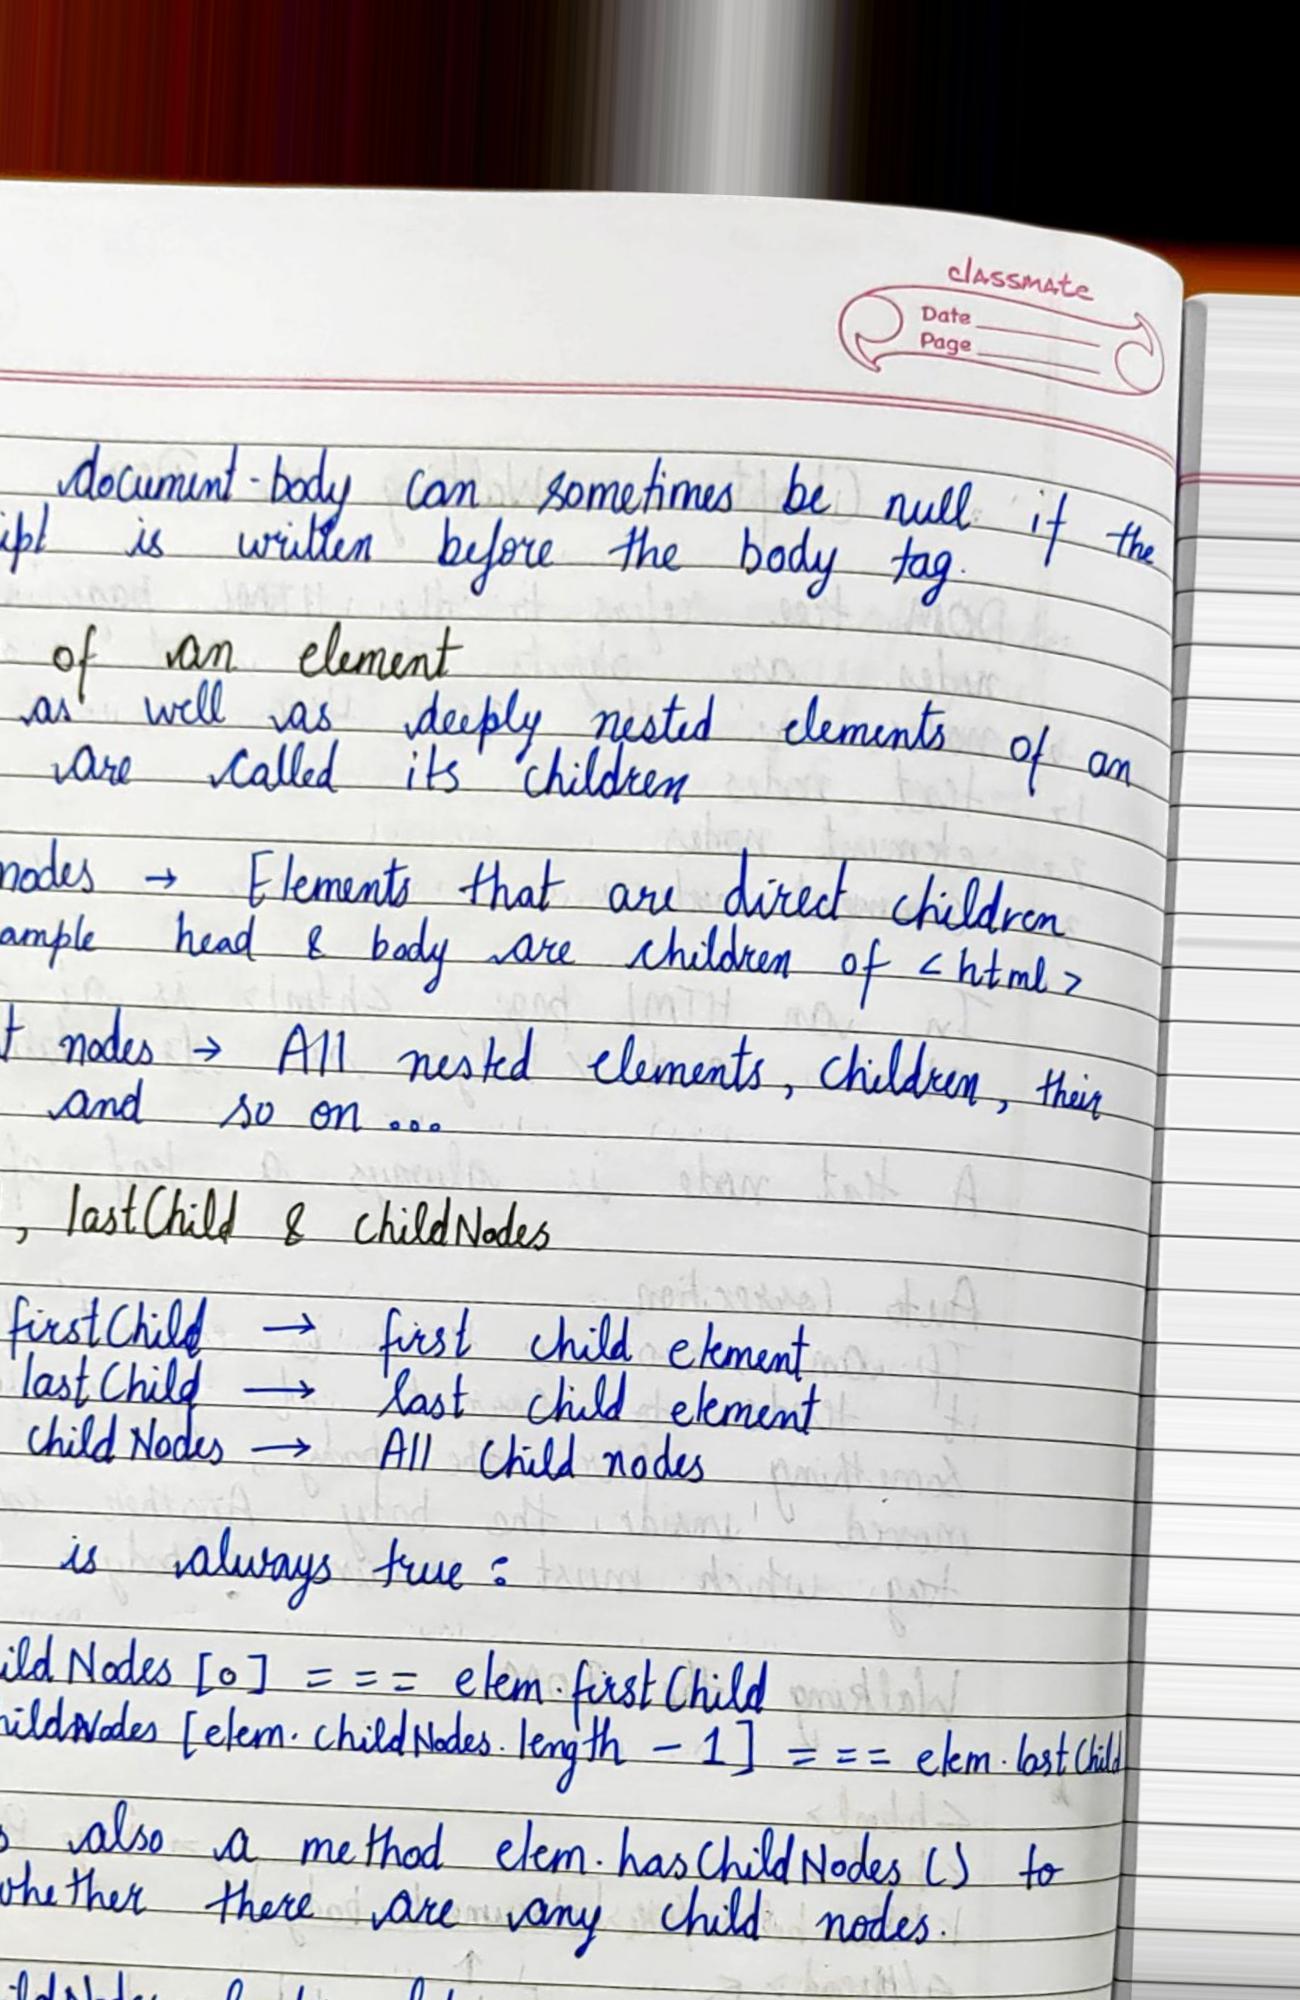 classmate
Date
Page
document.body can sometimes be null if the
ipt is written before the body tag.
of an element
as well as deeply nested elements of an
are called its children
nodes → Elements that are direct children
ample head & body are children of <html>
t nodes → All nested elements, children, their
and so on...
, lastChild & childNodes
firstChild → first child element
lastChild → last child element
childNodes → All child nodes
is always true :
ildNodes [0] === elem.firstChild
hildNodes [elem.childNodes.length - 1] === elem.lastChild
s also a method elem.hasChildNodes () to
whether there are any child nodes.